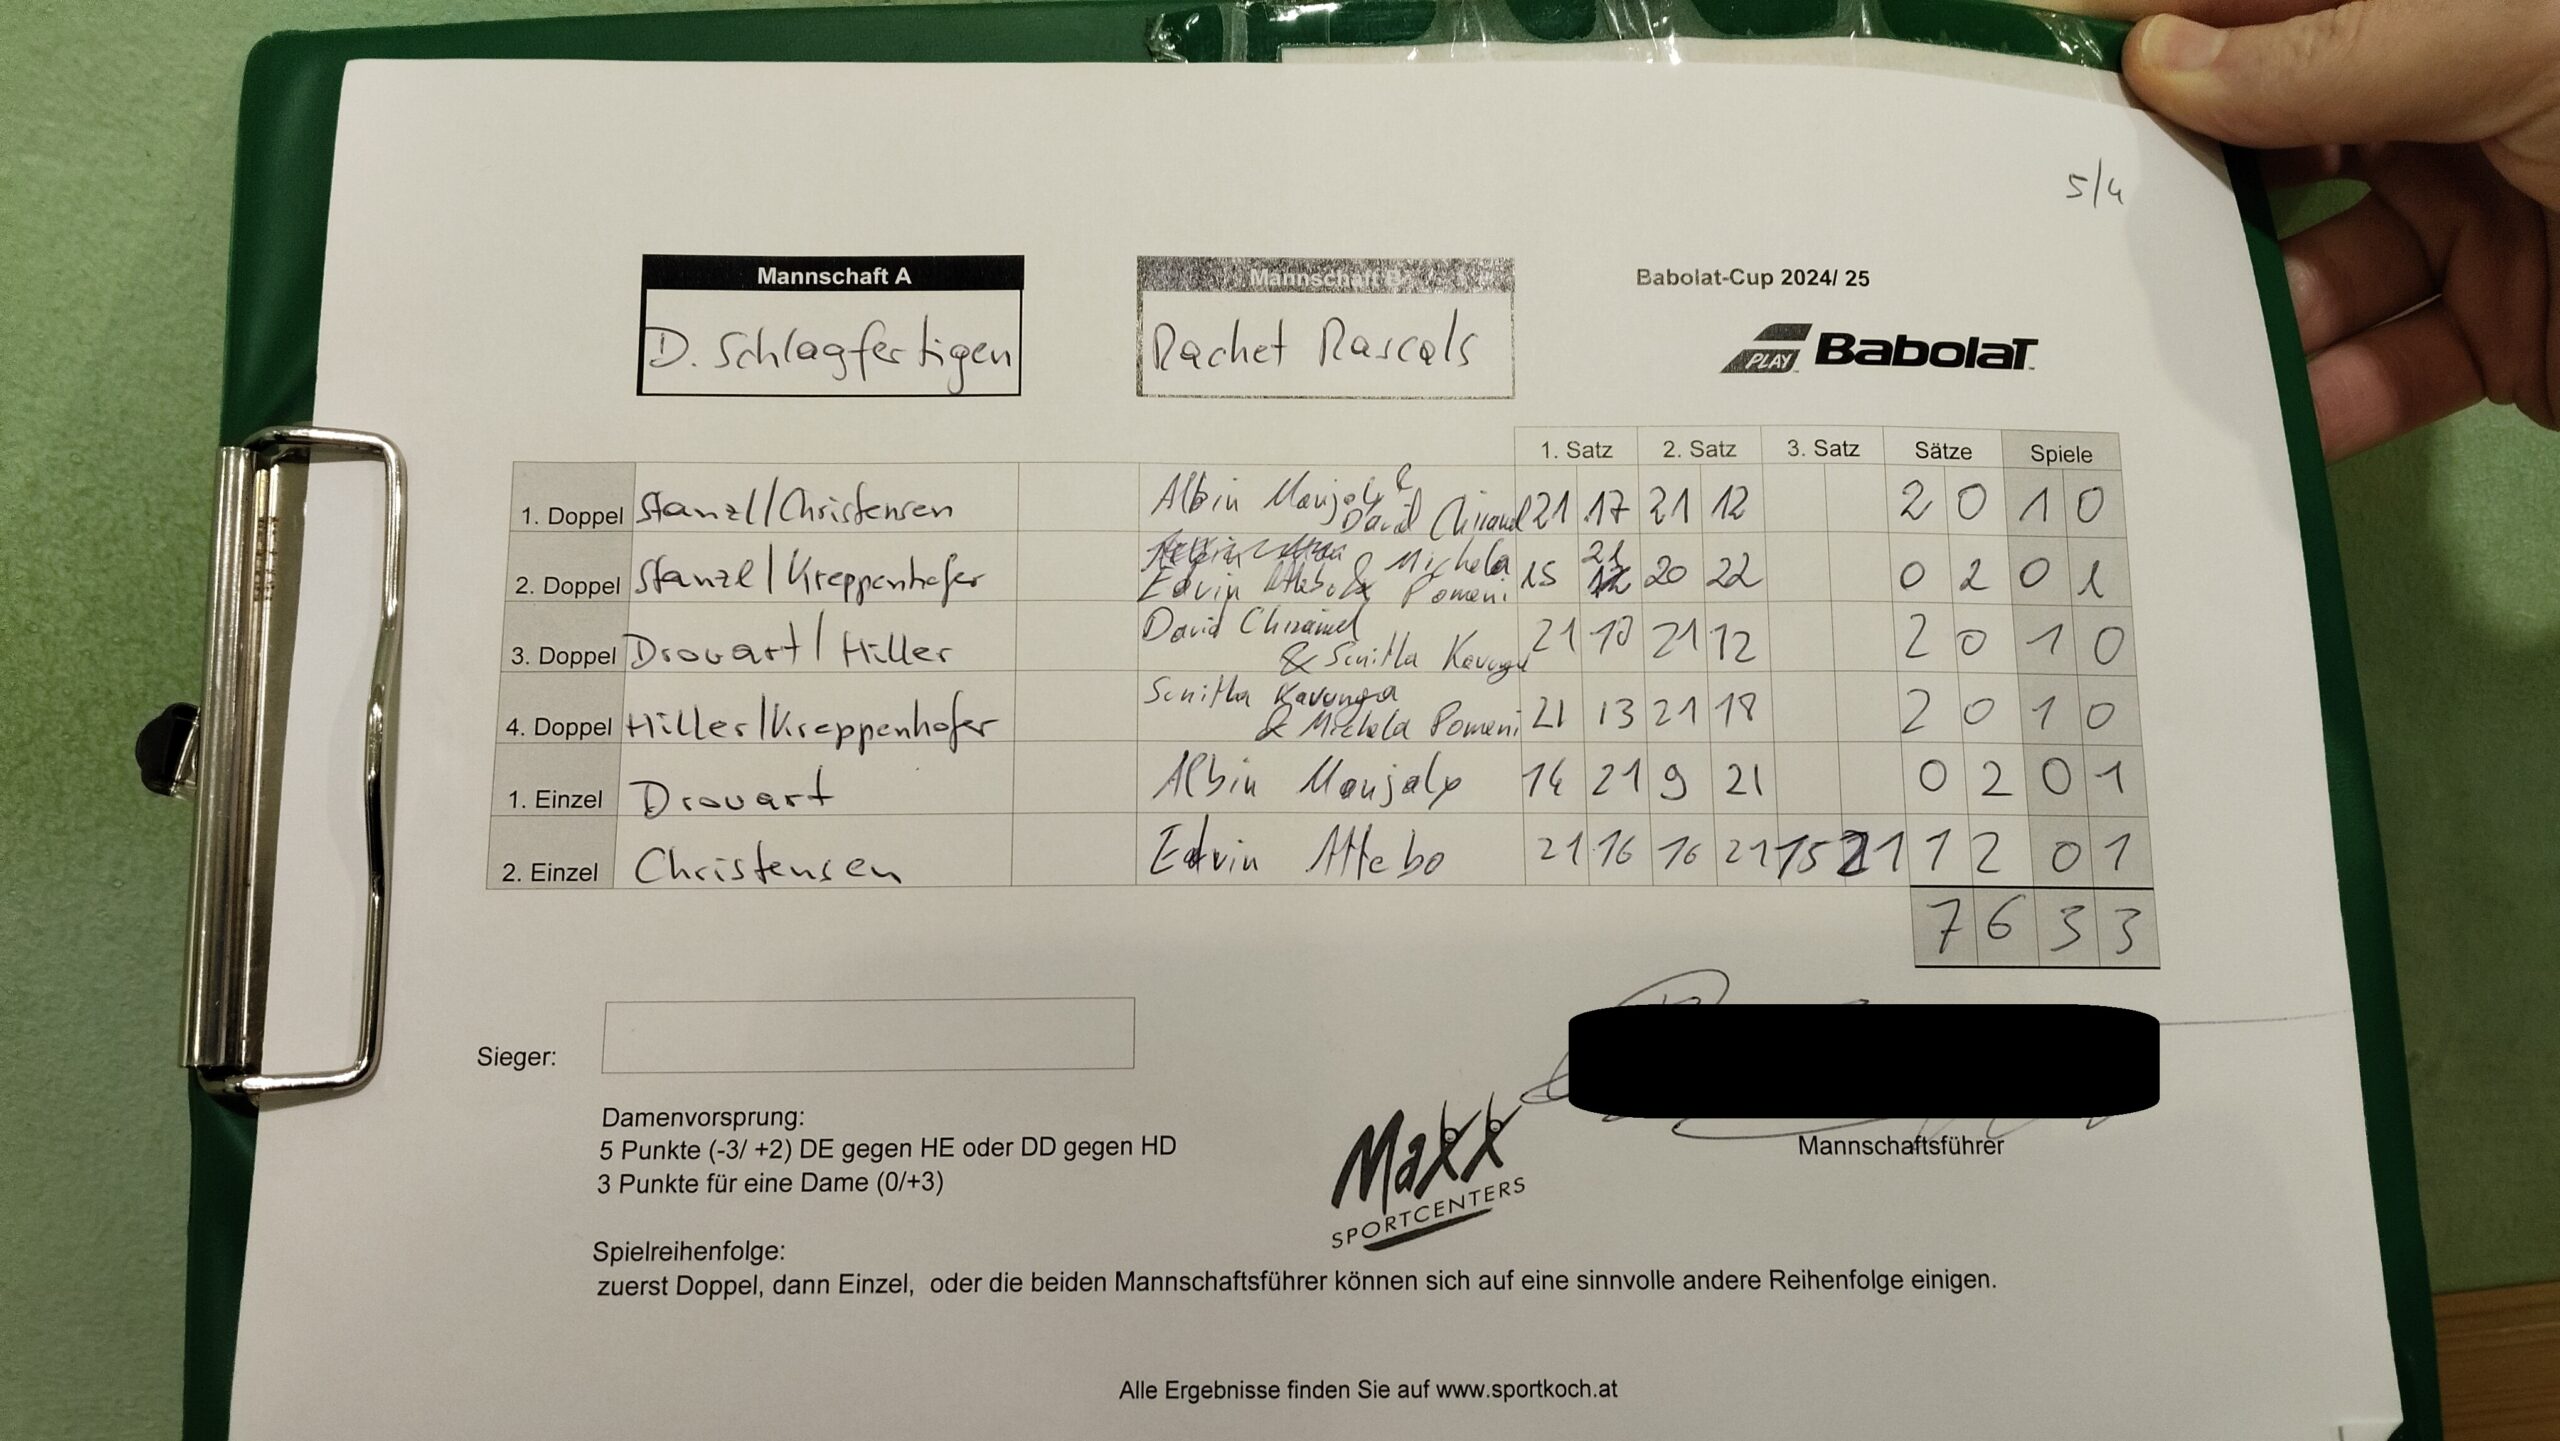 5/4
Mannschaft A
Mannschaft B
Babolat-Cup 2024/ 25
D. Schlagfertigen
Rachet Rascals
PLAY BabolaT
1. Satz 2. Satz 3. Satz Sätze Spiele
1. Doppel Stanzl/Christensen Albin Manjaly & David Chiramel 21 17 21 12 2 0 1 0
2. Doppel Stanzl/Kreppenhofer Edvin Attebo & Michela Pomeni 15 21 20 22 0 2 0 1
3. Doppel Drouart/Hiller David Chiramel
& Sunitha 21 10 21 12 2 0 1 0
4. Doppel Hiller/Kreppenhofer Sunitha Kavunga
& Michela Pomeni 21 13 21 18 2 0 1 0
1. Einzel Drouart Albin Manjaly 14 21 9 21 0 2 0 1
2. Einzel Christensen Edvin Attebo 21 16 16 21 15 21 1 2 0 1
7 6 3 3
Sieger:
Mannschaftsführer
Damenvorsprung:
5 Punkte (-3/ +2) DE gegen HE oder DD gegen HD
3 Punkte für eine Dame (0/+3)
Maxx
SPORTCENTERS
Spielreihenfolge:
zuerst Doppel, dann Einzel, oder die beiden Mannschaftsführer können sich auf eine sinnvolle andere Reihenfolge einigen.
Alle Ergebnisse finden Sie auf www.sportkoch.at